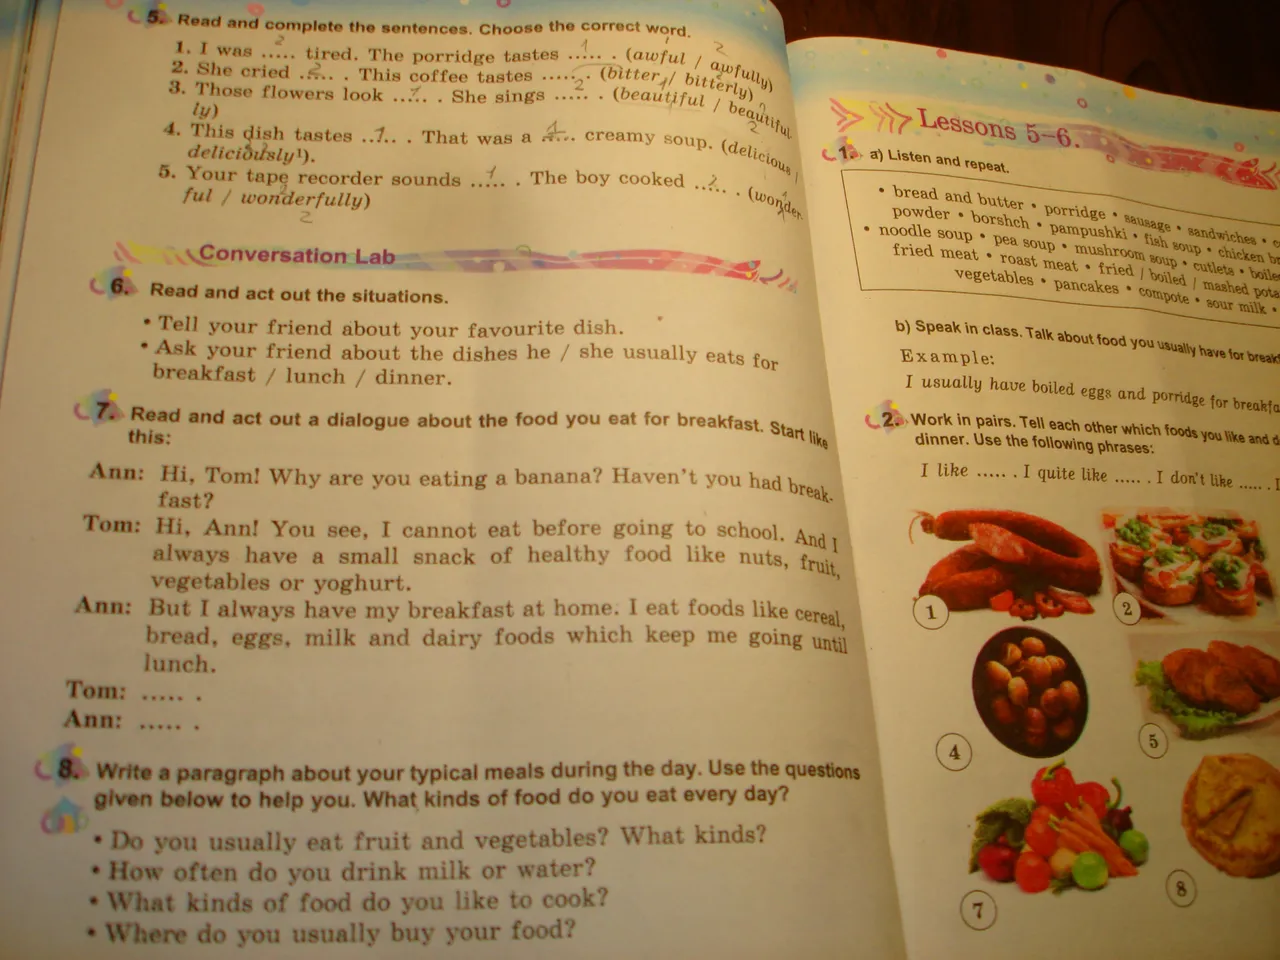 5. Read and complete the sentences. Choose the correct word.
1. I was ..... tired. The porridge tastes ..... . (awful / awfully)
2. She cried ..... . This coffee tastes ..... . (bitter / bitterly)
3. Those flowers look ..... . She sings ..... . (beautiful / beautiful-
ly)
4. This dish tastes ..... . That was a ..... creamy soup. (delicious /
deliciously¹).
5. Your tape recorder sounds ..... . The boy cooked ..... . (wonder-
ful / wonderfully)
Conversation Lab
6. Read and act out the situations.
• Tell your friend about your favourite dish.
• Ask your friend about the dishes he / she usually eats for
breakfast / lunch / dinner.
7. Read and act out a dialogue about the food you eat for breakfast. Start like
this:
Ann: Hi, Tom! Why are you eating a banana? Haven't you had break-
fast?
Tom: Hi, Ann! You see, I cannot eat before going to school. And I
always have a small snack of healthy food like nuts, fruit,
vegetables or yoghurt.
Ann: But I always have my breakfast at home. I eat foods like cereal,
bread, eggs, milk and dairy foods which keep me going until
lunch.
Tom: ..... .
Ann: ..... .
8. Write a paragraph about your typical meals during the day. Use the questions
given below to help you. What kinds of food do you eat every day?
• Do you usually eat fruit and vegetables? What kinds?
• How often do you drink milk or water?
• What kinds of food do you like to cook?
• Where do you usually buy your food?
Lessons 5–6.
1. a) Listen and repeat.
• bread and butter • porridge • sausage • sandwiches •
powder • borshch • pampushki • fish soup • chicken
• noodle soup • pea soup • mushroom soup • cutlets •
fried meat • roast meat • fried / boiled / mashed
vegetables • pancakes • compote • sour milk •
b) Speak in class. Talk about food you usually have for
Example:
I usually have boiled eggs and porridge for
2. Work in pairs. Tell each other which foods you like and
dinner. Use the following phrases:
I like ..... . I quite like ..... . I don't like ..... . I
1
2
4
5
7
8